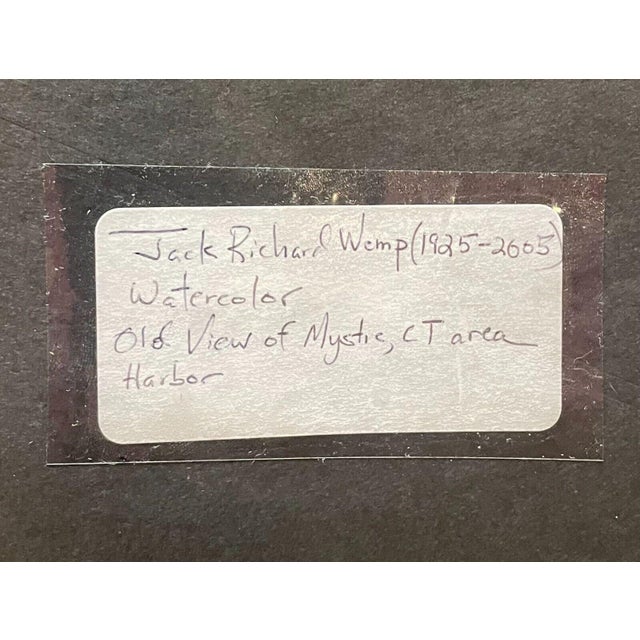 Jack Richard Wemp (1925-2005)
Watercolor
Old View of Mystic, CT area
Harbor